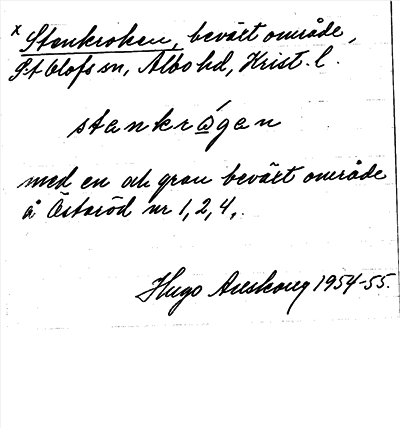 x Stenkroken, beväxt område,
S:t Olofs sn, Albo hd, Krist. l.
stankrǫ́gan
med en och gran beväxt område
å Östaröd nr 1, 2, 4,.
Hugo Areskoug 1954-55.